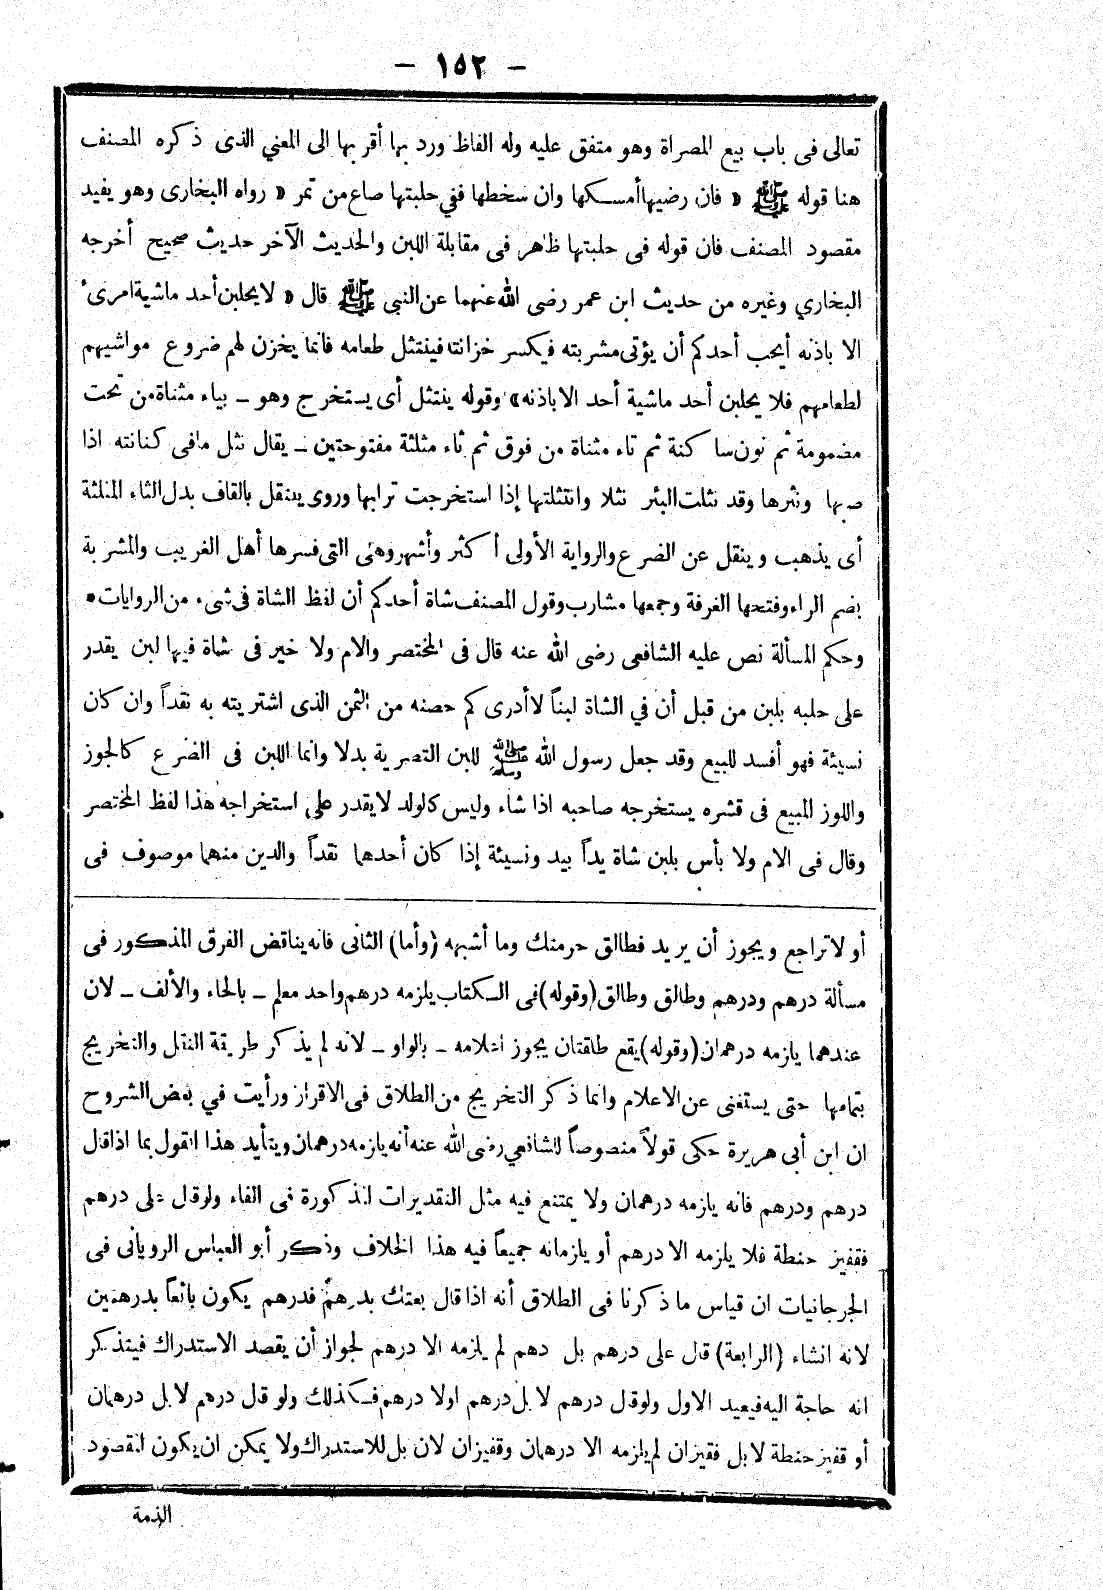 - ١٥٢ -
تعالى فى باب بيع المصراة وهو متفق عليه وله الفاظ ورد بها أقربها الى المعني الذى ذكره المصنف
هنا قوله ﷺ « فان رضيها أمسكها وان سخطها ففي حلبتها صاع من تمر « رواه البخارى وهو يفيد
مقصود المصنف فان قوله فى حلبتها ظاهر فى مقابلة اللبن والحديث الآخر حديث صحيح أخرجه
البخاري وغيره من حديث ابن عمر رضى الله عنهما عن النبى ﷺ قال « لايحلبن أحد ماشية امرىء
الا باذنه أيحب أحدكم أن يؤتى مشربته فيكسر خزانتا فينتثل طعامه فانما يخزن لهم ضروع مواشيهم
لطعامهم فلا يحلبن أحد ماشية أحد الا باذنه» وقوله ينتثل أى يستخرج وهو ـ بياء مثناة من تحت
مضمومة ثم نون ساكنة ثم تاء مثناة من فوق ثم ثاء مثلثة مفتوحتين ـ يقال نثل مافى كنانته اذا
صبها ونثرها وقد نثلت البئر نثلا وانتثلتها إذا استخرجت ترابها وروى ينتقل بالقاف بدل الثاء المثلثة
أى يذهب وينقل عن الضرع والرواية الأولى أكثر وأشهر وهى التى فسرها أهل الغريب والمشربة
بضم الراء وفتحها الغرفة وجمعها مشارب وقول المصنف شاة أحدكم أن لفظ الشاة فى شىء من الروايات *
وحكم المسألة نص عليه الشافعى رضى الله عنه قال فى المختصر والام ولا خير فى شاة فيها لبن يقدر
على حلبه بلبن من قبل أن في الشاة لبناً لا أدرى كم حصنه من الثمن الذى اشتريته به نقداً وان كان
نسيئة فهو أفسد للبيع وقد جعل رسول الله ﷺ للبن التصرية بدلا وانما اللبن فى الضرع كالجوز
واللوز المبيع فى قشره يستخرجه صاحبه اذا شاء وليس كالولد لايقدر على استخراجه هذا لفظ المختصر
وقال فى الام ولا بأس بلبن شاة يداً بيد ونسيئة إذا كان أحدها نقداً والدين منهما موصوف فى
أو لا تراجع ويجوز أن يريد فطالق حرمتك وما أشبهه (وأما) الثانى فانه يناقض الفرق المذكور فى
مسألة درهم ودرهم وطالق وطالق (وقوله) فى الكتاب يلزمه درهم واحد معلم ـ بالحاء والألف ـ لان
عندهما يلزمه درهمان (وقوله) يقع طلقتان يجوز اعلامه ـ بالواو ـ لانه لم يذكر طريقة النقل والتخريج
بتمامها حتى يستغنى عن الاعلام وانما ذكر التخريج من الطلاق فى الاقرار ورأيت في بعض الشروح
ان ابن أبى هريرة حكى قولاً منصوصاً للشافعي رضى الله عنه أنه يلزمه درهمان ويتأيد هذا القول بما اذا قال
درهم ودرهم فانه يلزمه درهمان ولا يمتنع فيه مثل التقديرات المذكورة فى الفاء ولو قال على درهم
فقفيز حنطة فلا يلزمه الا درهم أو يلزمانه جميعاً فيه هذا الخلاف وذكر أبو العباس الرويانى فى
الجرجانيات ان قياس ما ذكرنا فى الطلاق أنه اذا قال بعتك بدرهم فدرهم يكون بائعاً بدرهمين
لانه انشاء (الرابعة) قال على درهم بل دهم لم يلزمه الا درهم لجواز أن يقصد الاستدراك فيتذكر
انه حاجة اليه فيعيد الاول ولو قال درهم لا بل درهم او لا درهم فكذلك ولو قال درهم لا بل درهمان
أو قفيز حنطة لا بل قفيزان لم يلزمه الا درهمان وقفيزان لان بل للاستدراك ولا يمكن ان يكون المقصود
الذمة